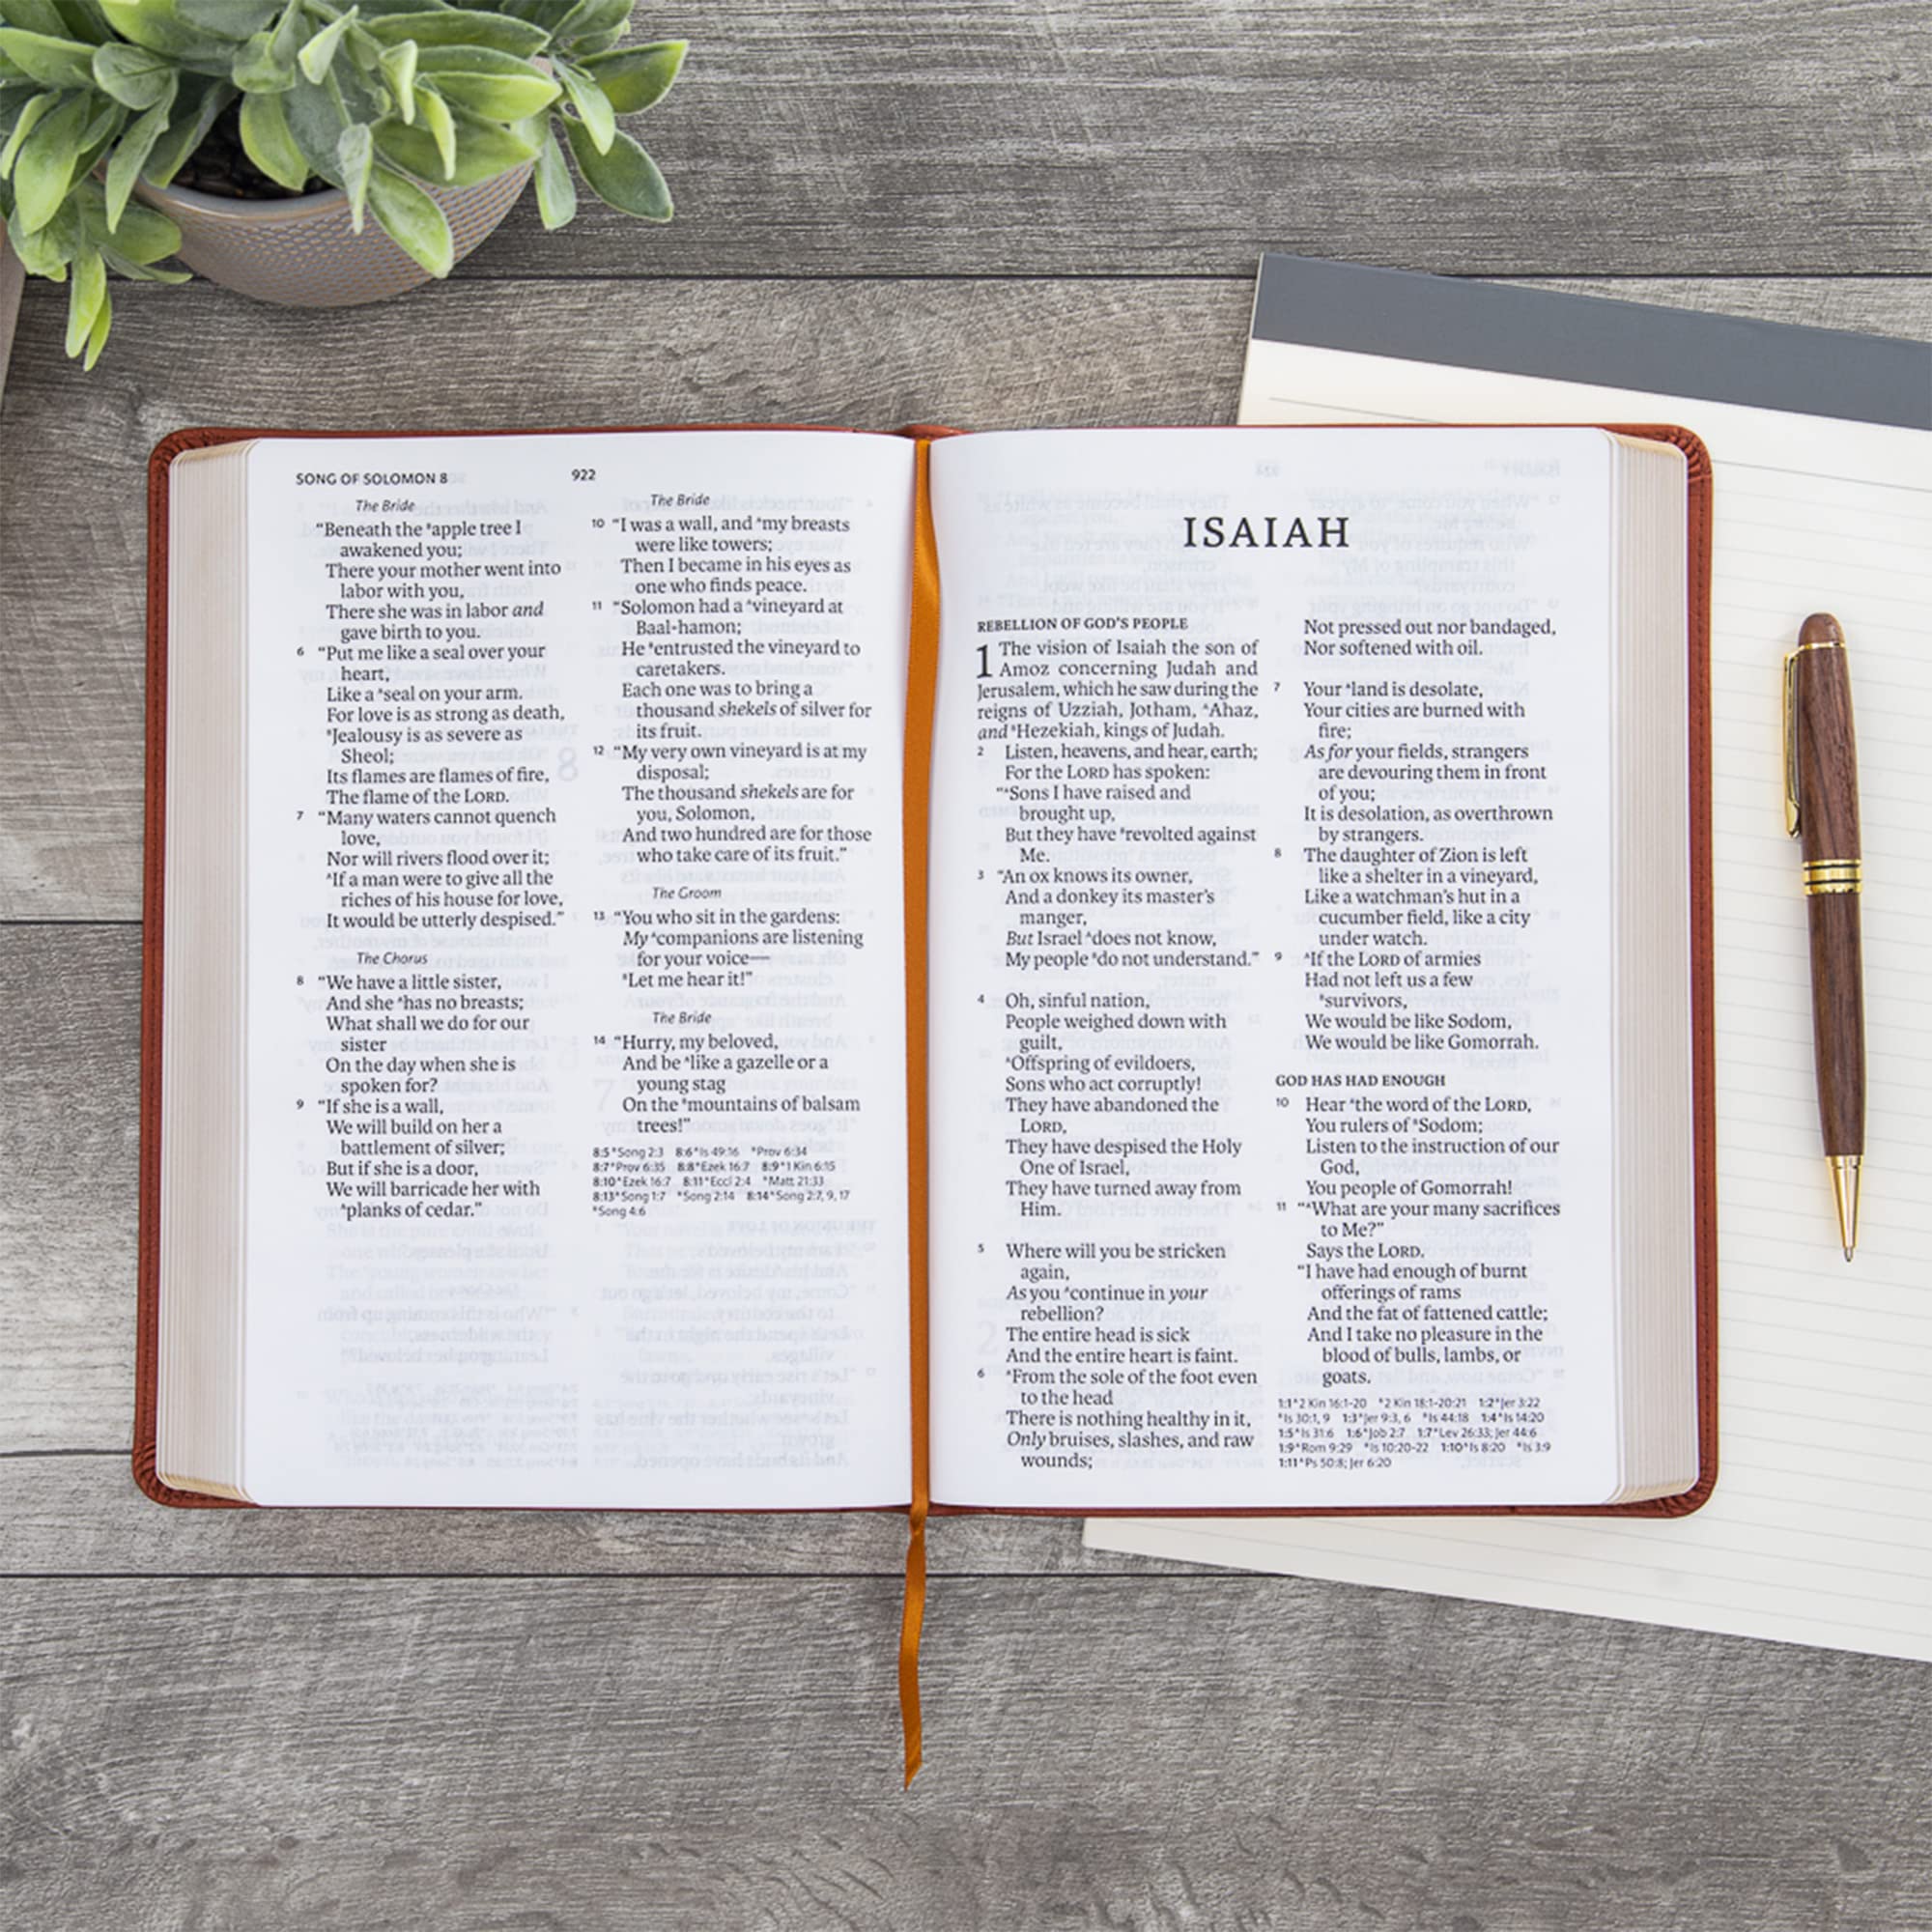 SONG OF SOLOMON 8
922
The Bride
"Beneath the ᴬapple tree I
awakened you;
There your mother went into
labor with you,
There she was in labor and
gave birth to you.
6 "Put me like a seal over your
heart,
Like a ᴬseal on your arm.
For love is as strong as death,
ᴮJealousy is as severe as
Sheol;
Its flames are flames of fire,
The flame of the LORD.
7 "Many waters cannot quench
love,
Nor will rivers flood over it;
ᴬIf a man were to give all the
riches of his house for love,
It would be utterly despised."
The Chorus
8 "We have a little sister,
And she ᴬhas no breasts;
What shall we do for our
sister
On the day when she is
spoken for?
9 "If she is a wall,
We will build on her a
battlement of silver;
But if she is a door,
We will barricade her with
ᴬplanks of cedar."
The Bride
10 "I was a wall, and ᴬmy breasts
were like towers;
Then I became in his eyes as
one who finds peace.
11 "Solomon had a ᴬvineyard at
Baal-hamon;
He ᴮentrusted the vineyard to
caretakers.
Each one was to bring a
thousand shekels of silver for
its fruit.
12 "My very own vineyard is at my
disposal;
The thousand shekels are for
you, Solomon,
And two hundred are for those
who take care of its fruit."
The Groom
13 "You who sit in the gardens:
My ᴬcompanions are listening
for your voice—
ᴮLet me hear it!"
The Bride
14 "Hurry, my beloved,
And be ᴬlike a gazelle or a
young stag
On the ᴮmountains of balsam
trees!"
8:5 ᴬSong 2:3 8:6 ᴬIs 49:16 ᴮProv 6:34
8:7 ᴬProv 6:35 8:8 ᴬEzek 16:7 8:9 ᴬ1 Kin 6:15
8:10 ᴬEzek 16:7 8:11 ᴬEccl 2:4 ᴮMatt 21:33
8:13 ᴬSong 1:7 ᴮSong 2:14 8:14 ᴬSong 2:7, 9, 17
ᴮSong 4:6
ISAIAH
REBELLION OF GOD'S PEOPLE
1 The vision of Isaiah the son of
Amoz concerning Judah and
Jerusalem, which he saw during the
reigns of Uzziah, Jotham, ᴬAhaz,
and ᴮHezekiah, kings of Judah.
2 Listen, heavens, and hear, earth;
For the LORD has spoken:
"ᴬSons I have raised and
brought up,
But they have ᴮrevolted against
Me.
3 "An ox knows its owner,
And a donkey its master's
manger,
But Israel ᴬdoes not know,
My people ᴮdo not understand."
4 Oh, sinful nation,
People weighed down with
guilt,
ᴬOffspring of evildoers,
Sons who act corruptly!
They have abandoned the
LORD,
They have despised the Holy
One of Israel,
They have turned away from
Him.
5 Where will you be stricken
again,
As you ᴬcontinue in your
rebellion?
The entire head is sick
And the entire heart is faint.
6 ᴬFrom the sole of the foot even
to the head
There is nothing healthy in it,
Only bruises, slashes, and raw
wounds;
Not pressed out nor bandaged,
Nor softened with oil.
7 Your ᴬland is desolate,
Your cities are burned with
fire;
As for your fields, strangers
are devouring them in front
of you;
It is desolation, as overthrown
by strangers.
8 The daughter of Zion is left
like a shelter in a vineyard,
Like a watchman's hut in a
cucumber field, like a city
under watch.
9 ᴬIf the LORD of armies
Had not left us a few
ᴮsurvivors,
We would be like Sodom,
We would be like Gomorrah.
GOD HAS HAD ENOUGH
10 Hear ᴬthe word of the LORD,
You rulers of ᴮSodom;
Listen to the instruction of our
God,
You people of Gomorrah!
11 "ᴬWhat are your many sacrifices
to Me?"
Says the LORD.
"I have had enough of burnt
offerings of rams
And the fat of fattened cattle;
And I take no pleasure in the
blood of bulls, lambs, or
goats.
1:1 ᴬ2 Kin 16:1-20 ᴮ2 Kin 18:1-20:21 1:2 ᴬJer 3:22
ᴮIs 30:1, 9 1:3 ᴬJer 9:3, 6 ᴮIs 44:18 1:4 ᴬIs 14:20
1:5 ᴬIs 31:6 1:6 ᴬJob 2:7 1:7 ᴬLev 26:33; Jer 44:6
1:9 ᴬRom 9:29 ᴮIs 10:20-22 1:10 ᴬIs 8:20 ᴮIs 3:9
1:11 ᴬPs 50:8; Jer 6:20